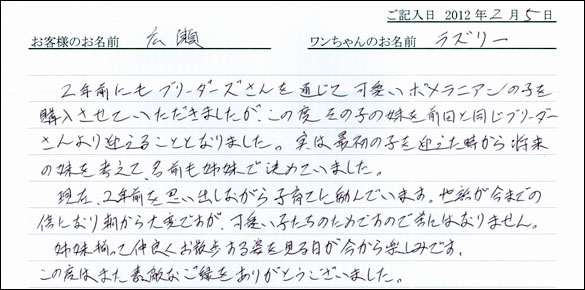 ご記入日 2012年2月5日
お客様のお名前 広瀬 ワンちゃんのお名前 ラズリー
2年前にもブリーダーズさんを通じて可愛いポメラニアンの子を
購入させていただきましたが、この度その子の妹を前回と同じブリーダー
さんより迎えることとなりました。実は最初の子を迎えた時から将来
の妹を考えて、名前も姉妹で決めていました。
現在、2年前を思い出しながら子育てに励んでいます。世話が今までの
倍になり朝から大変ですが、可愛い子たちのためですので苦にはなりません。
姉妹揃って仲良くお散歩する姿を見る日が今から楽しみです。
この度はまた素敵なご縁をありがとうございました。